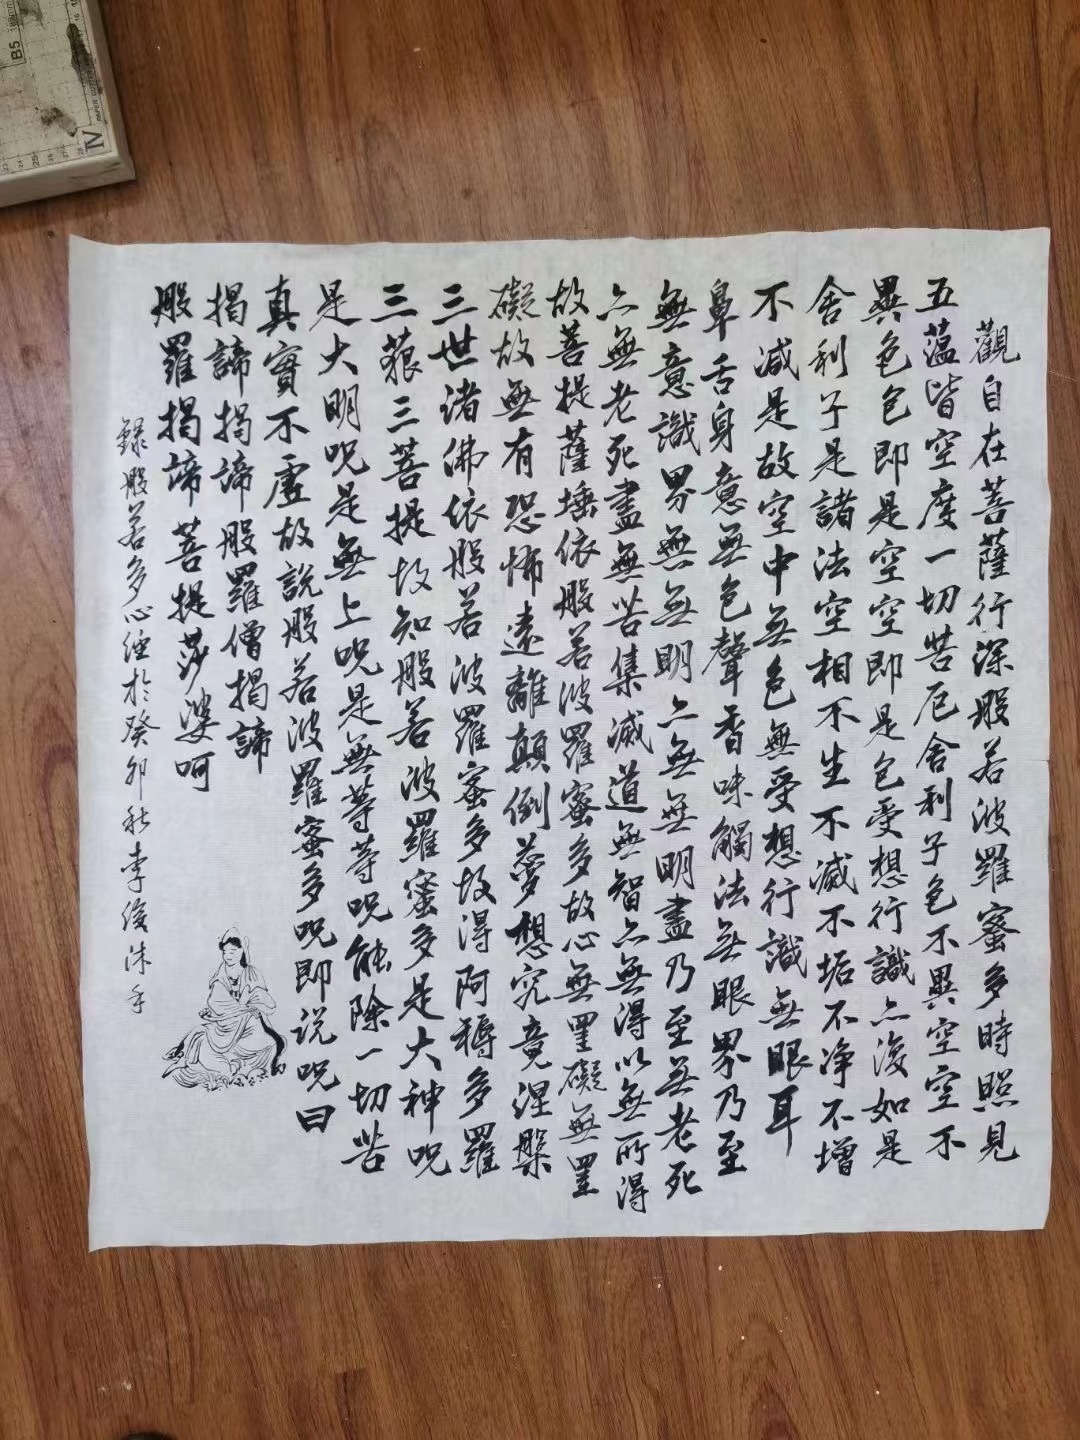 觀自在菩薩行深般若波羅蜜多時照見
五蕰皆空度一切苦厄舍利子色不異空空不
異色色即是空空即是色受想行識亦復如是
舍利子是諸法空相不生不滅不垢不净不增
不减是故空中无色無受想行識無眼耳
鼻舌身意無色聲香味觸法无眼界乃至
無意識界無無明亦無無明盡乃至无老死
亦無老死盡無苦集滅道無智亦無得以無所得
故菩提薩埵依般若波羅蜜多故心無罣礙無罣
礙故無有恐怖遠離顛倒夢想究竟涅槃
三世諸佛依般若波羅蜜多故得阿耨多羅
三藐三菩提故知般若波羅蜜多是大神呪
是大明呪是無上呪是無等等呪能除一切苦
真實不虛故說般若波羅蜜多呪即说呪曰
揭諦揭諦般羅僧揭諦
般羅揭諦菩提莎婆呵
録般若多心經於癸卯秋李俊洙手
B5
PAPER CUTTER
IV